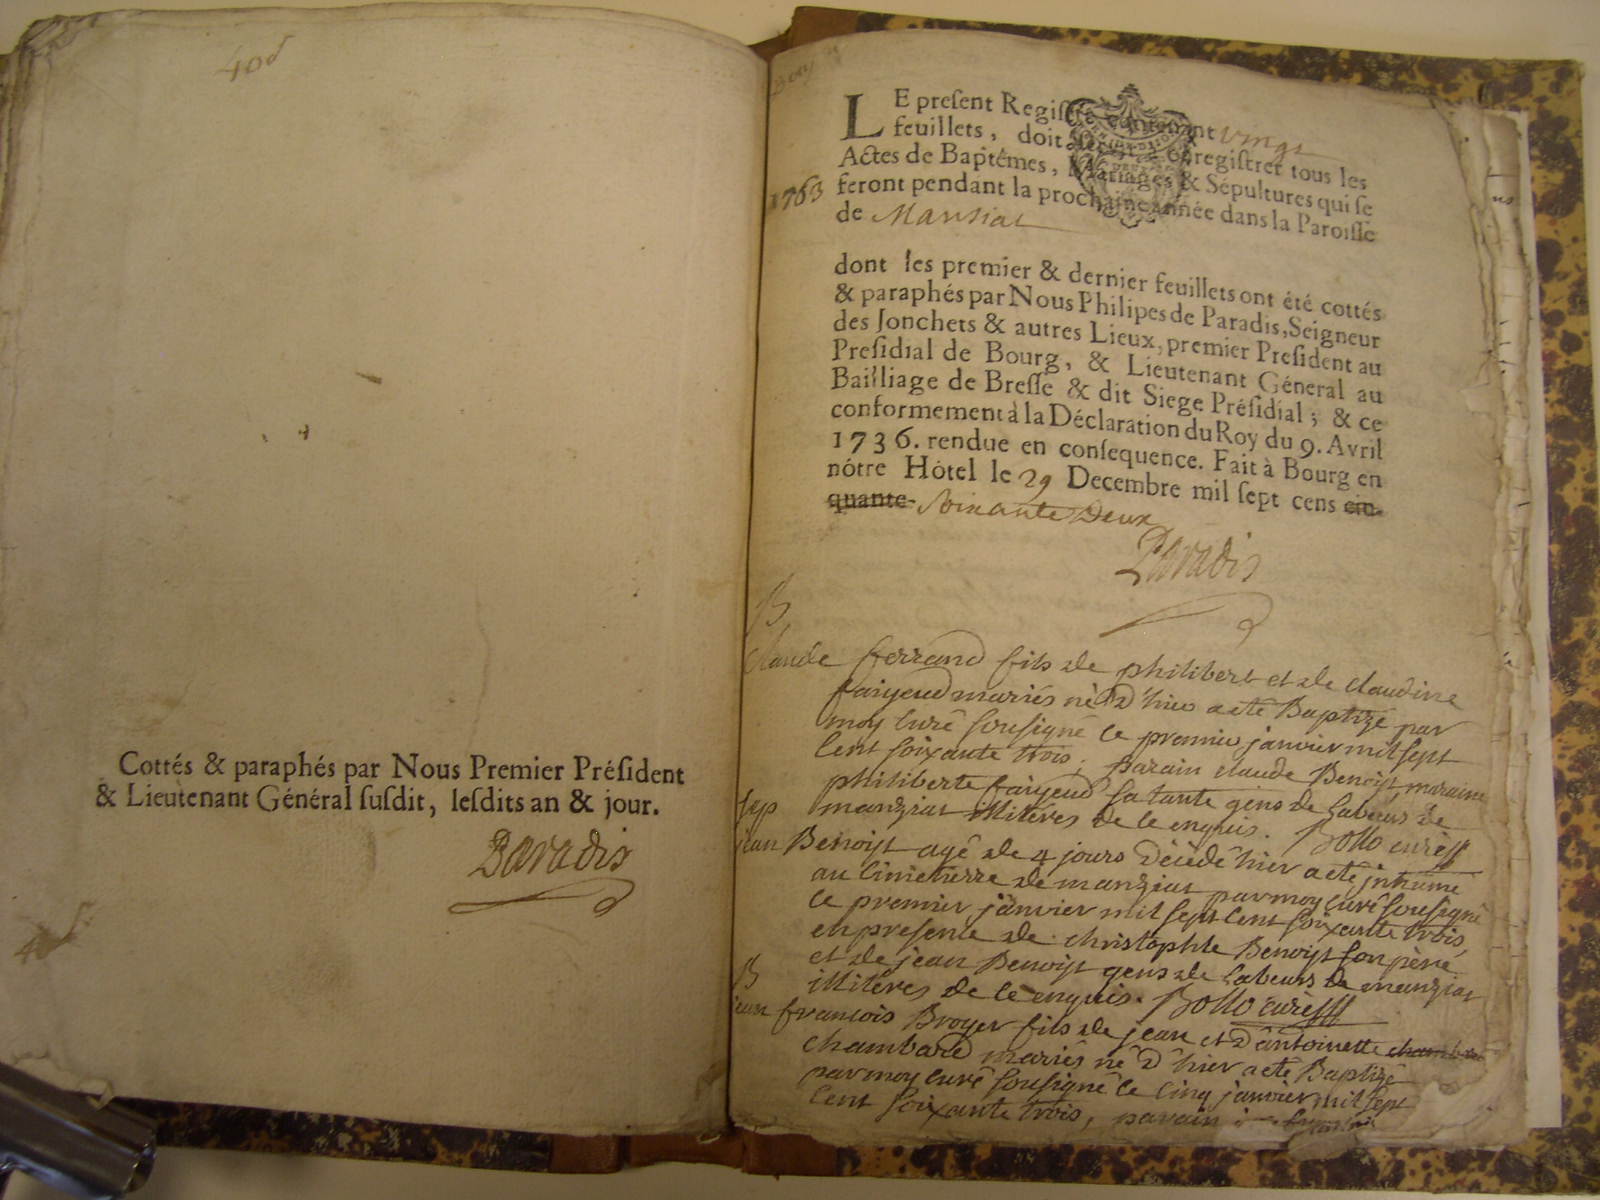 Cottés & paraphés par Nous Premier Président
& Lieutenant Général susdit, lesdits an & jour.
Paradis
1763
LE preſent Regiſtre contenant vingt
feuillets, doit ſervir à enregiſtrer tous les
Actes de Baptêmes, Mariages & Sépultures qui ſe
feront pendant la prochaine année dans la Paroiſſe
de Mansiat
dont les premier & dernier feuillets ont été cottés
& paraphés par Nous Philipes de Paradis, Seigneur
des Jonchets & autres Lieux, premier Preſident au
Preſidial de Bourg, & Lieutenant Géneral au
Bailliage de Breſſe & dit Siege Préſidial; & ce
conformement à la Déclaration du Roy du 9. Avril
1736. rendue en conſequence. Fait à Bourg en
nôtre Hôtel le 29 Decembre mil ſept cens cin-
quante soixante Deux
Paradis
B
Claude ferrand fils de philibert et de claudine
faiyeud mariés né D'hier a eté Baptizé par
moy curé sousigné le premier janvier mil sept
cent soixante trois; parain claude Benoist, maraine
philiberte faiyeud sa tante gens de labeurs de
manziat illiterés de ce enquis. Bollo curé
sep
jean Benoist agé de 4 jours décédé hier a eté jnhumé
au cimetierre de manziat par moy curé sousigné
le premier janvier mil sept cent soixante trois
en presence de christophle Benoist son pere
et de jean Benoist gens de labeurs de manziat
illiterés de ce enquis. Bollo curé
B
jean francois Broyer fils de jean et d'antoinette
chambard mariés né D'hier a eté Baptizé
par moy curé sousigné le cinq janvier mil sept
cent soixante trois, parain